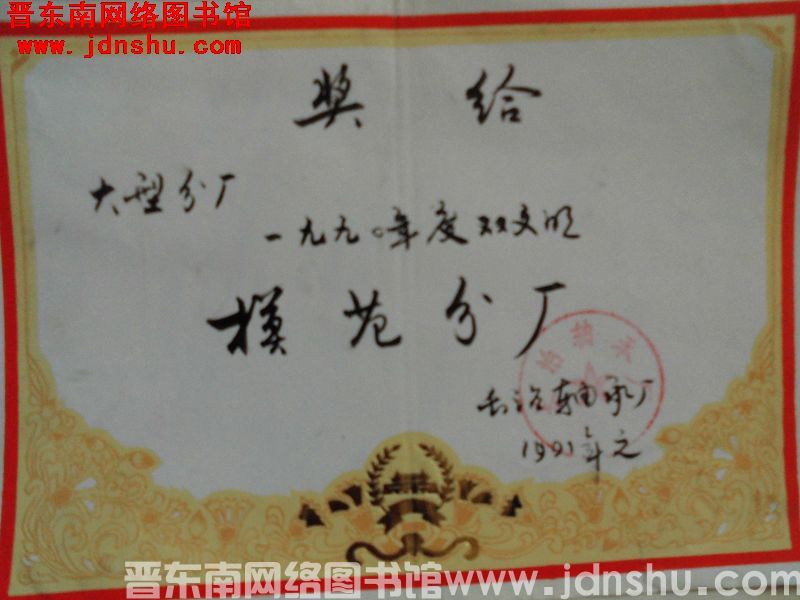 晋东南网络图书馆
www.jdnshu.com
奖给
大型分厂
一九九〇年度双文明
模范分厂
长治轴承厂
1991年元
晋东南网络图书馆www.jdnshu.com